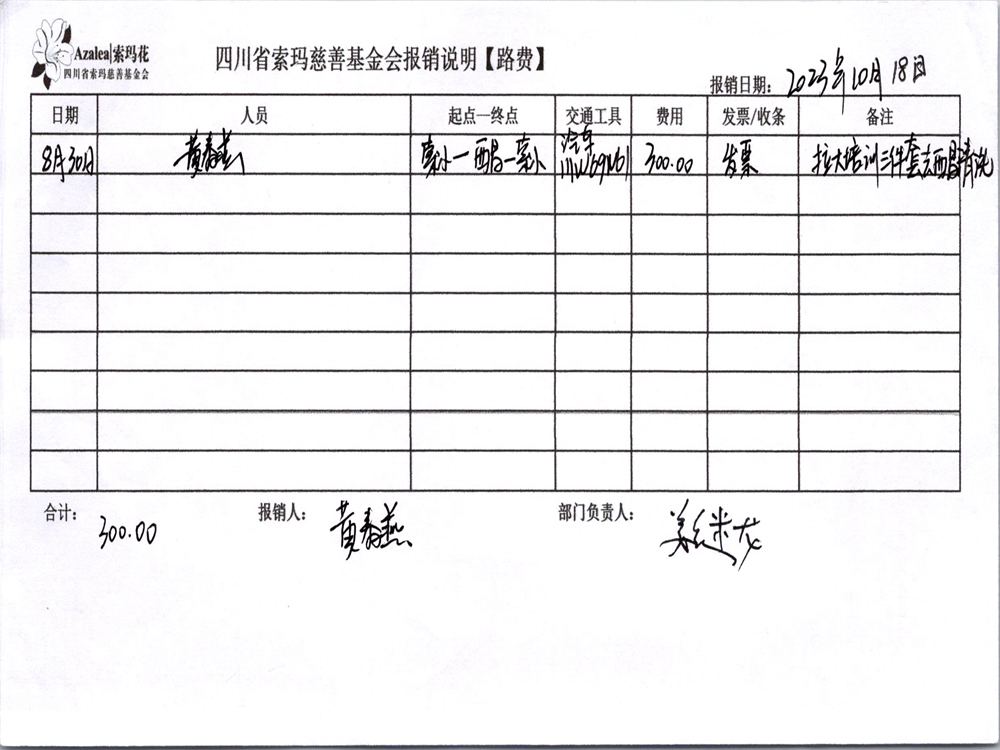 Azalea|索玛花
四川省索玛慈善基金会
四川省索玛慈善基金会报销说明【路费】
报销日期: 2023年10月18日
日期 人员 起点—终点 交通工具 费用 发票/收条 备注
8月30日 黄春燕 索小—西昌—索小 汽车 300.00 发票 拉大培训三件套去西昌清洗
合计: 300.00 报销人: 黄春燕 部门负责人: